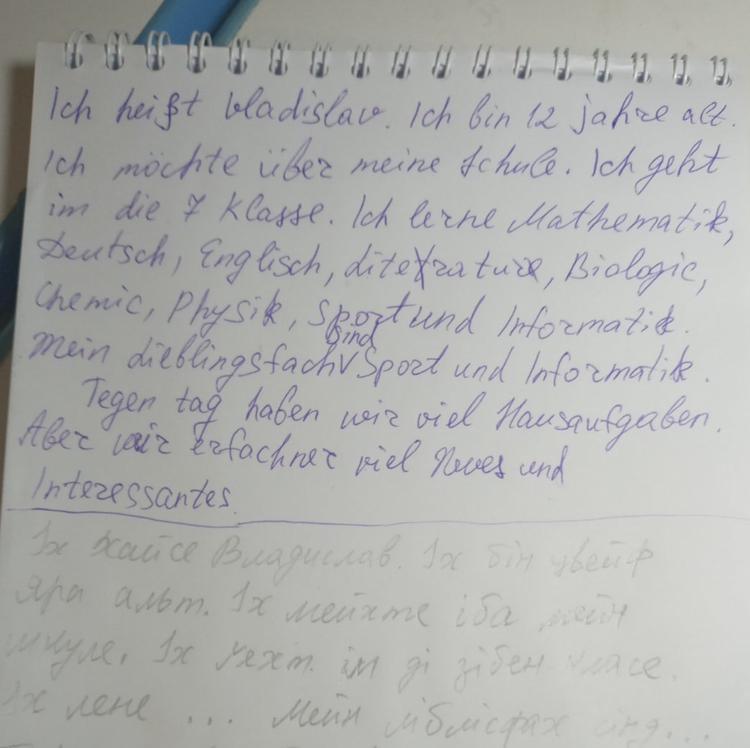 Ich heißt Vladislav. Ich bin 12 jahre alt.
Ich möchte über meine Schule. Ich geht
im die 7 Klasse. Ich lerne Mathematik,
Deutsch, Englisch, Biologic,
Chemic, Physik, Sport und Informatik.
sind
Mein Lieblingsfach V Sport und Informatik.
Tegen tag haben wir viel Hausaufgaben.
Aber wir erfachner viel Neues und
Interessantes.
Іх хайсе Владислав. Іх бін цвейф
яра альт. Іх мейхте іба мейн
шкуле. Іх гехт ім ді зібен класе.
Іх лене ... Мейн ліблісфах сінд...